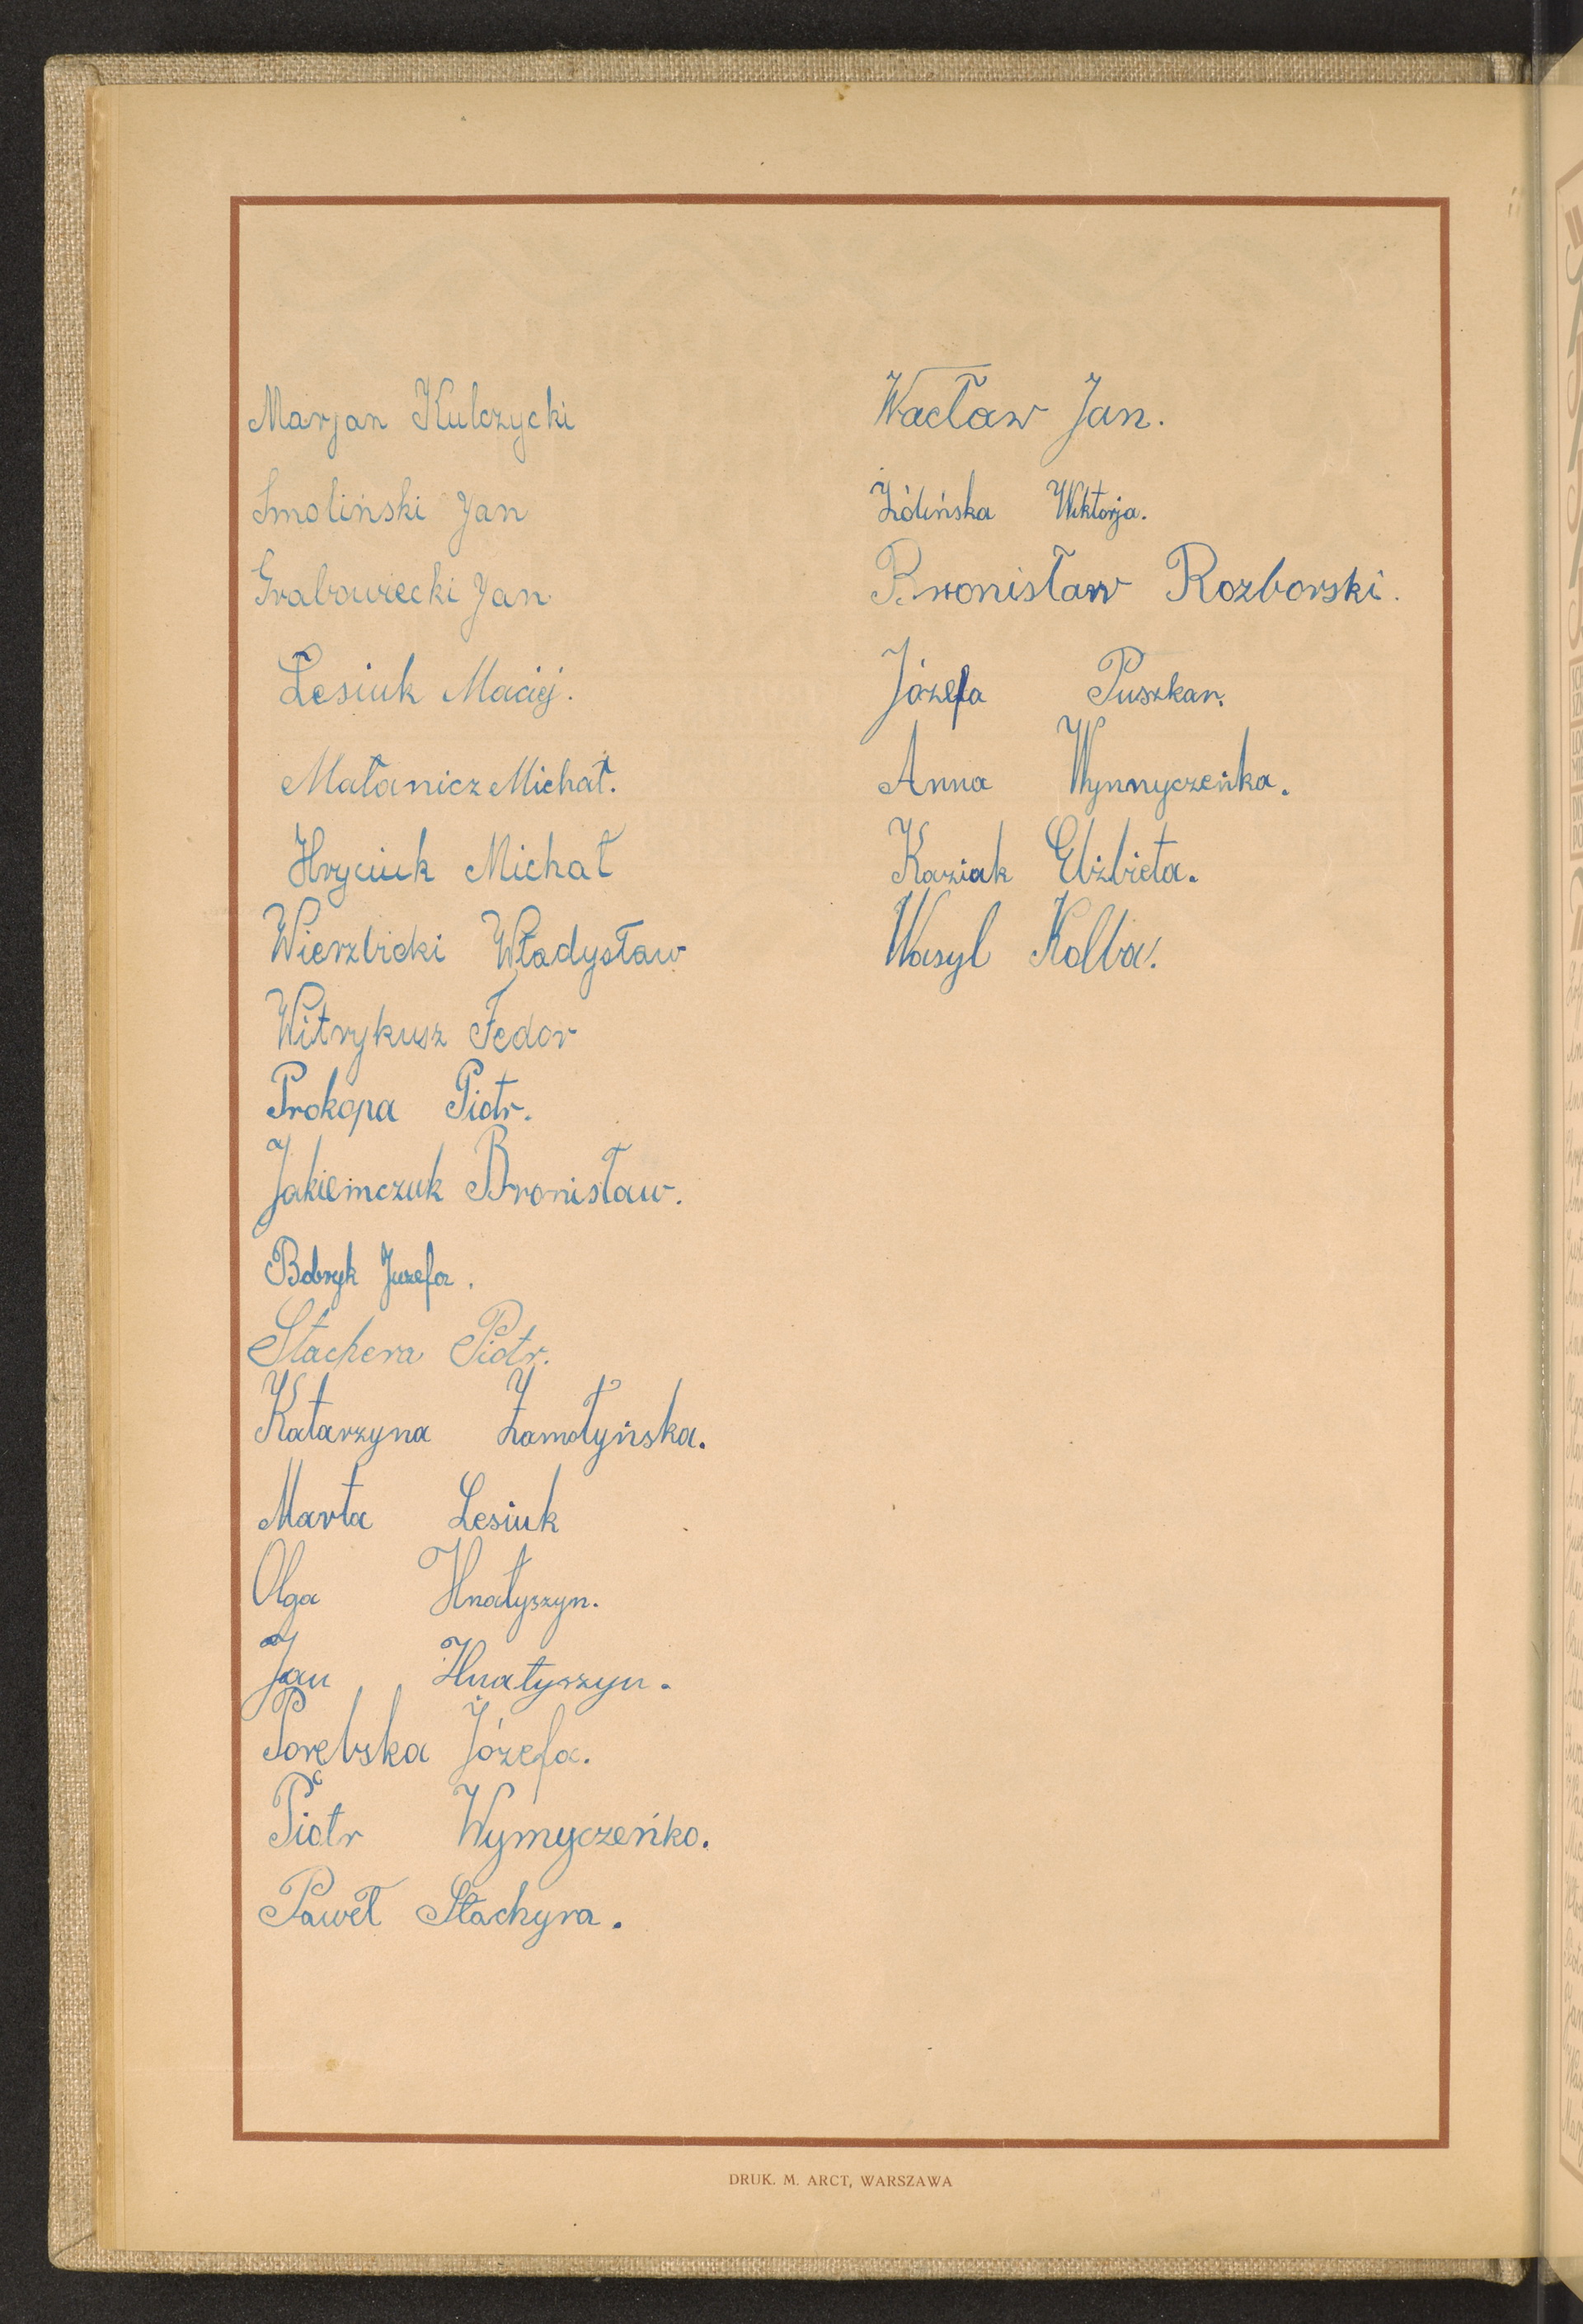 Marjan Kulczycki
Smoliński Jan
Grabowiecki Jan
Lesiuk Maciej.
Matanicz Michał.
Hryciuk Michał
Wierzbicki Władysław
Witrykusz Fedor
Prokopa Piotr.
Jakiemczuk Bronisław.
Bobryk Juzefa.
Stachera Piotr.
Katarzyna Zamołyńska.
Marta Lesiuk
Olga Hnatyszyn.
Jan Hnatyszyn.
Porębska Józefa.
Piotr Wymyczeńko.
Paweł Stachyra.
Wacław Jan.
Żólińska Wiktorja.
Bronisław Rozborski.
Józefa Puszkar.
Anna Wynnyczeńka.
Kaziak Elżbieta.
Wasyl Kolba.
DRUK. M. ARCT, WARSZAWA